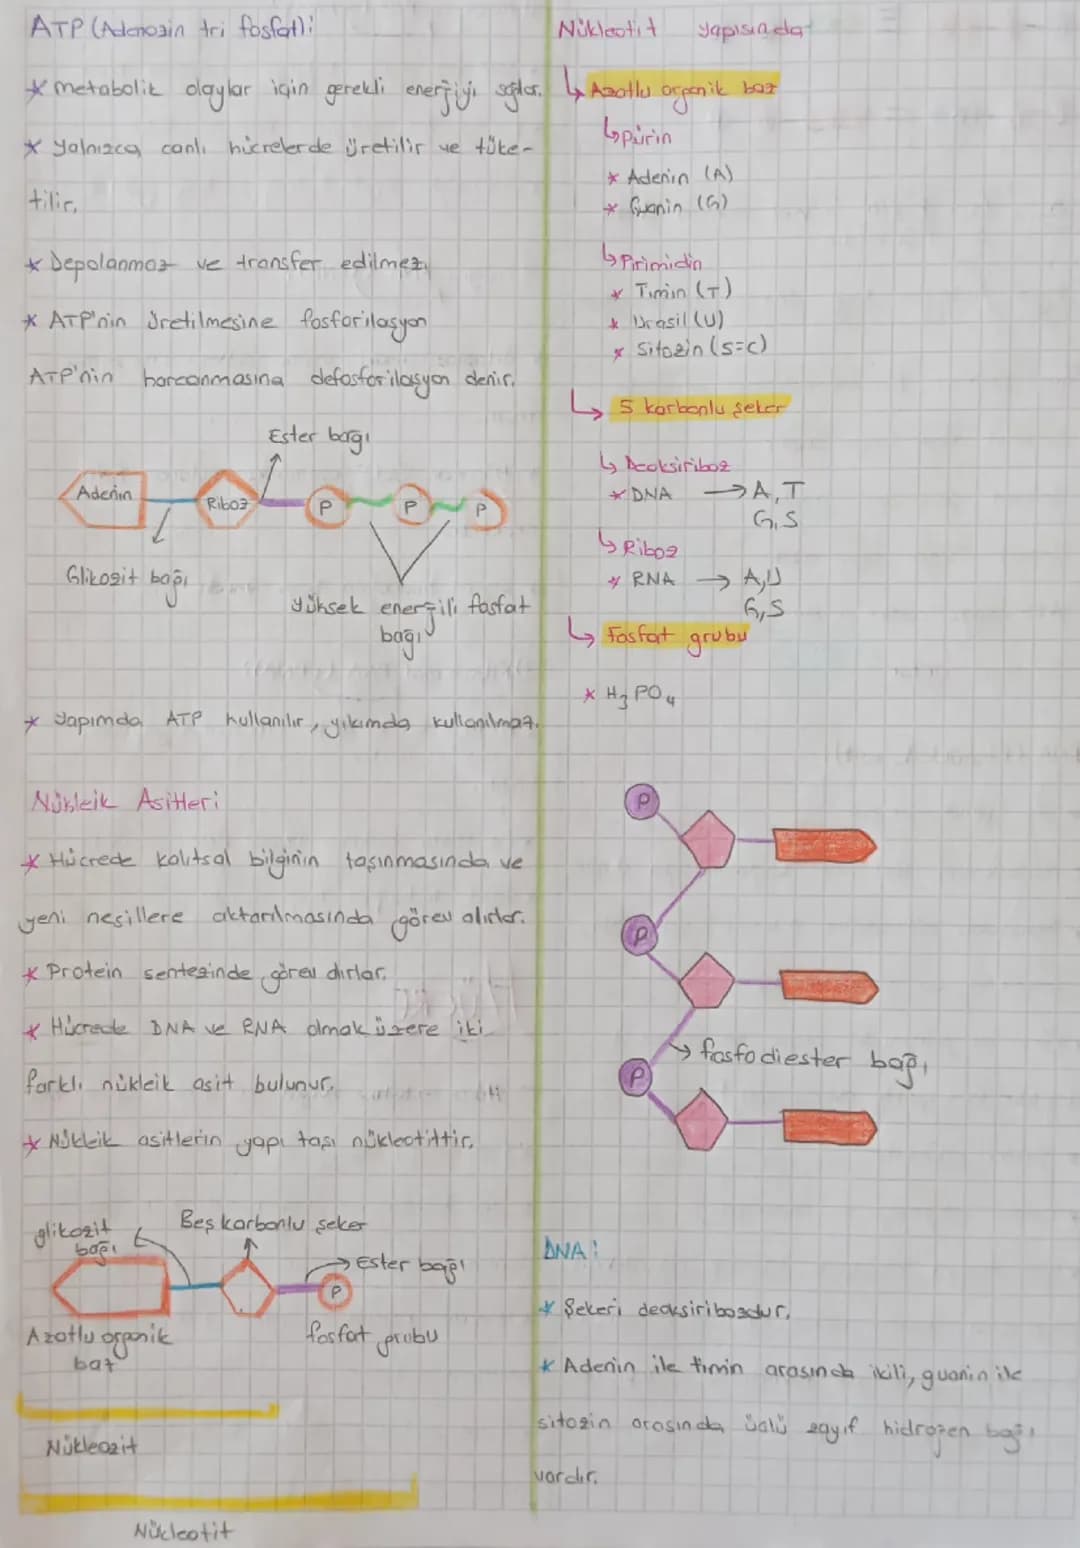 ATP (Adenozin tri fosfat):
* metabolik olaylar için gerekli enerjiyi sağlar.
* Yalnızca canlı hücrelerde üretilir ve tüke-
tilir.
* Depolanmaz ve transfer edilmez.
* ATP'nin üretilmesine fosforilasyon
ATP'nin harcanmasına defosforilasyon denir.
Ester bağı
Adenin
Riboz
P
P
P
Glikozit bağı
Yüksek enerjili fosfat
bağı
* Yapımda ATP kullanılır, yıkımda kullanılmaz.
Nükleik Asitleri
* Hücrede kalıtsal bilginin taşınmasında ve
yeni nesillere aktarılmasında görev alırlar.
* Protein sentezinde görev dırlar.
* Hücrede DNA ve RNA olmak üzere iki
farklı nükleik asit bulunur.
* Nükleik asitlerin yapı taşı nükleotittir.
glikozit
bağı
Beş karbonlu şeker
Ester bağı
P
Azotlu organik
baz
fosfat grubu
Nükleozit
Nükleotit
Nükleotit yapısında
↳ Azotlu organik baz
↳ pürin
* Adenin (A)
* Guanin (G)
↳ Pirimidin
* Timin (T)
* Urasil (U)
* Sitozin (S=C)
↳ 5 karbonlu şeker
↳ Deoksiriboz
* DNA → A, T
G, S
↳ Riboz
* RNA → A, U
G, S
↳ Fosfat grubu
* H3PO4
P
P
→ fosfodiester bağı
P
DNA:
* Şekeri deoksiribozdur.
* Adenin ile timin arasında ikili, guanin ile
sitozin arasında üçlü zayıf hidrojen bağı
vardır.